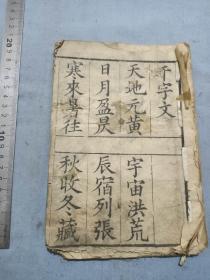 千字文
天地元黃
宇宙洪荒
日月盈昃
辰宿列張
寒來暑往
秋收冬藏